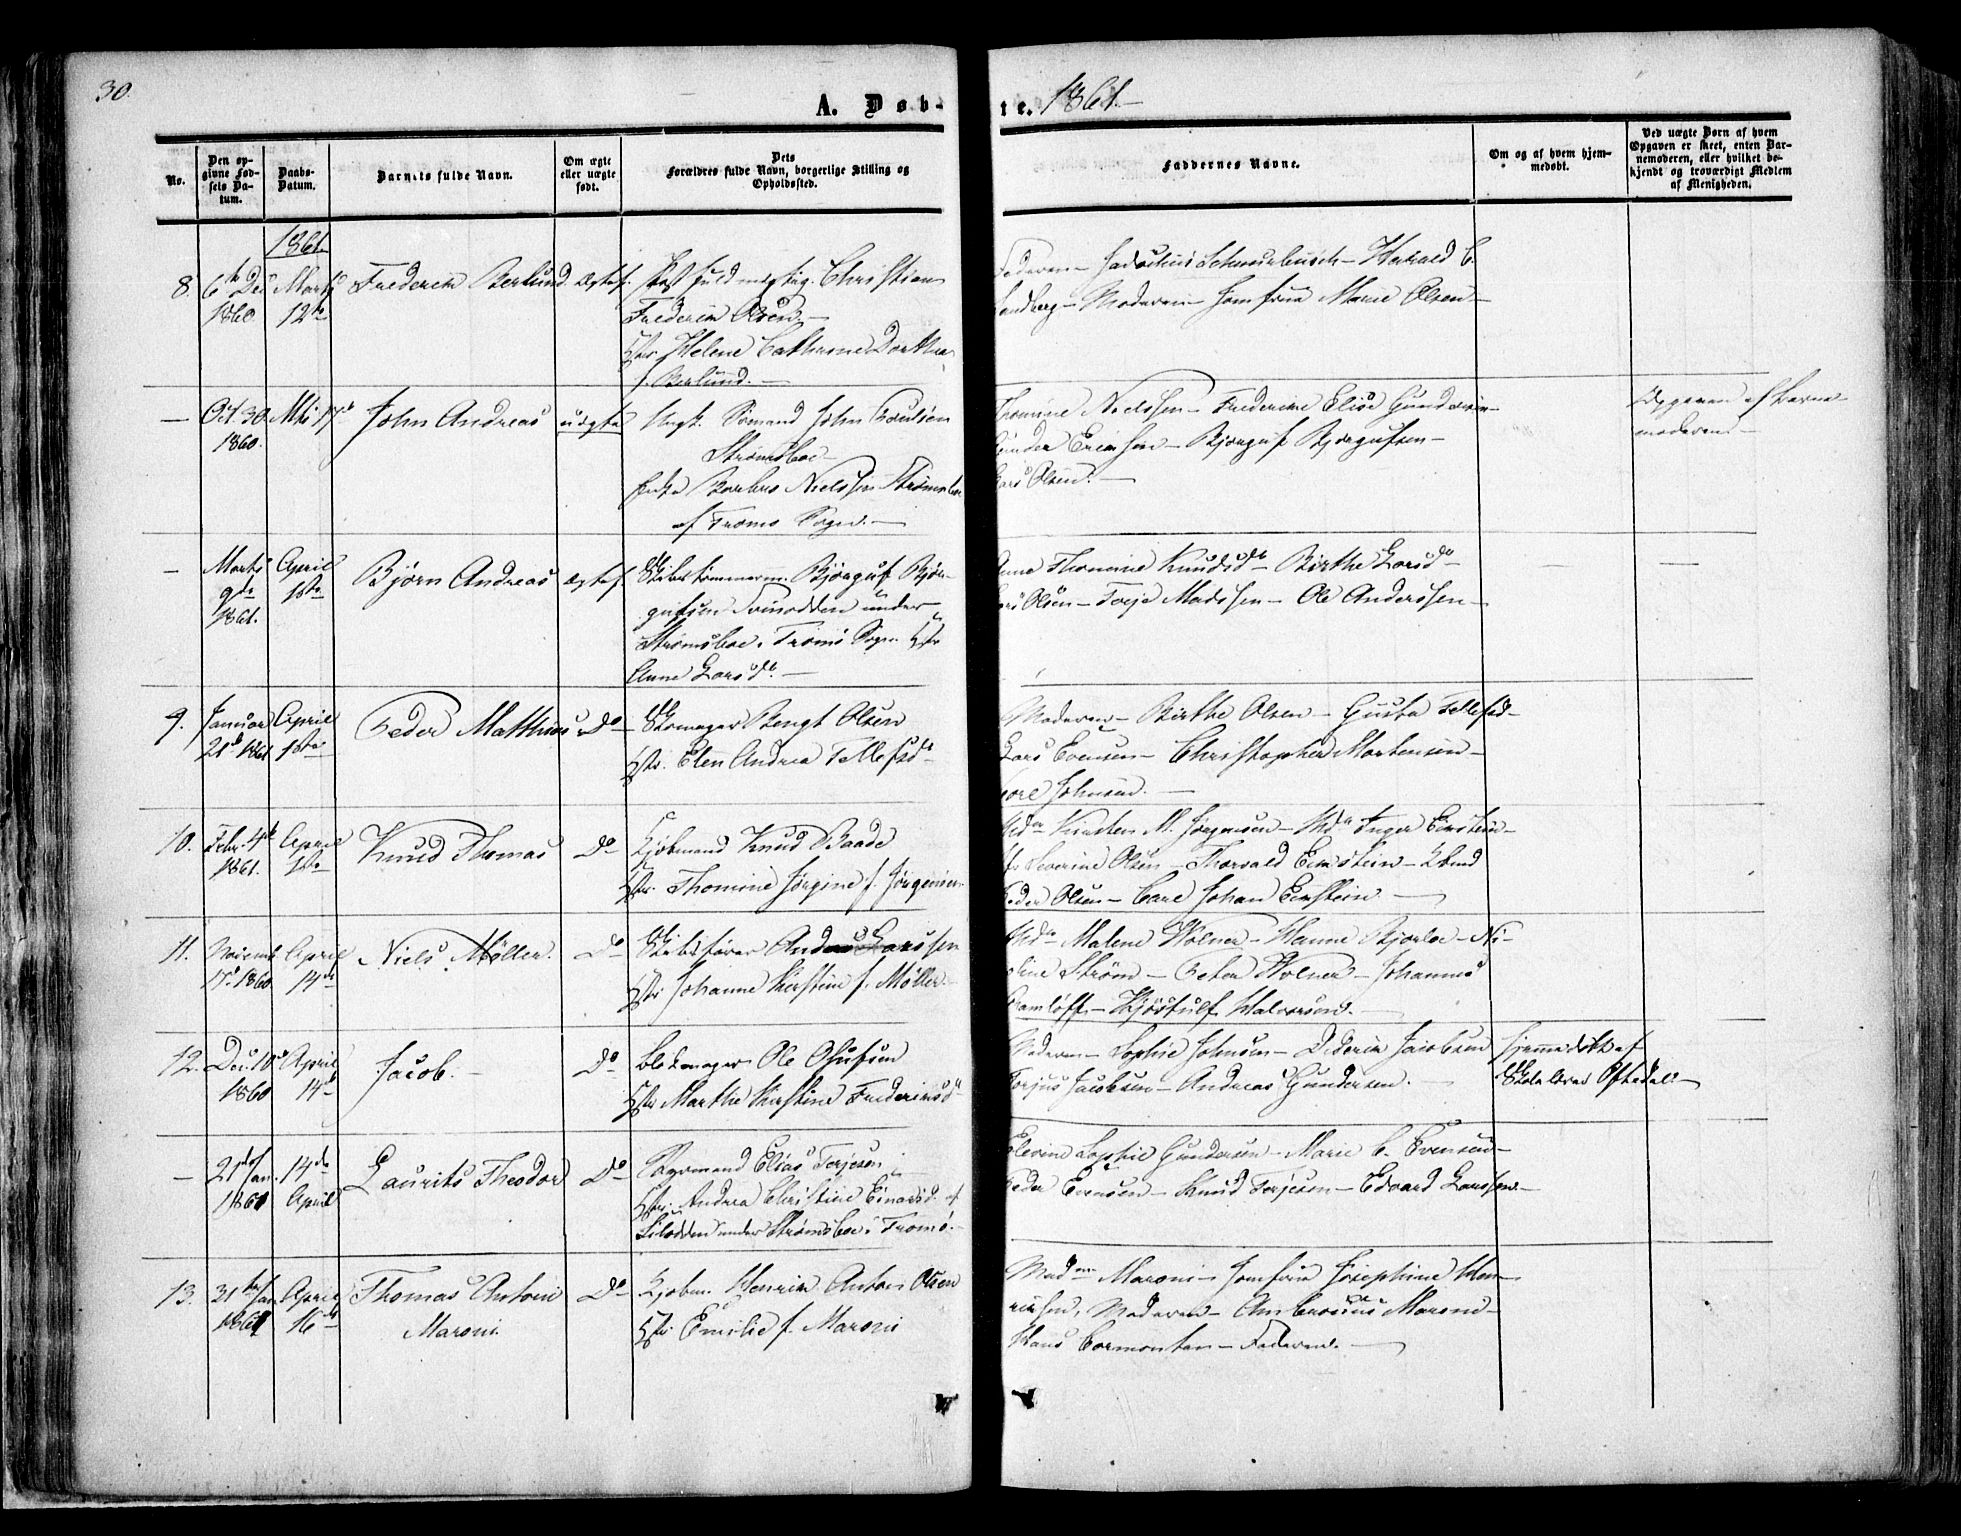 30.
A. Døb-
te. 1861.
No.
Den op-
givne Fød-
sels Da-
tum.
Daabs-
Datum.
Barnets fulde Navn.
Om ægte
eller uægte
født.
Dets
Forældres fulde Navn, borgerlige Stilling og
Opholdssted.
Faddernes Navne.
Om og af hvem hjem-
medøbt.
Ved uægte Børn af hvem
Opgaven er skeet, enten Bar-
nemoderen, eller hvilket be-
kjendt og troværdigt Medlem
af Menigheden.
1861.
8. 6te Dec 1860 Marts 12te Frederik Berlund Ægtef. Christian
Frederik Olsen.
Helene Cathrine Dorthea
f. Berlund.
Faderen - Harald C.
Moderen - Jomfru Marie Olsen -
— Oct. 30 1860. John Andreas uægte Ungk. Sømand John Poulsen
Strømsboe -
Barbro Nielssen Strømsboe
af Tromø Sogn. -
Thomine Nielssen - Frederikke Elise Gundersen -
Eriksen - Bjørguf Bjørgufsen -
Lars Olsen. -
Opgaven af Barne-
moderen -
— Marts 9de 1861. April 1ste Bjørn Andreas Ægtef. Skibstømmerm. Bjørguf Bjør-
gufsen under
Strømsboe, Tromø Sogn
Anne Larsd. -
Anne Thomine Knudsd. - Birthe Larsd. -
Lars Olsen - Terje Madssen - Ole Anderssen -
9. Januar 21de 1861 April 1ste Peder Matthias Do Skomager Bengt Olsen
Elen Andrea Tellefsd.
Moderen - Birthe Olsen - Gusta Tellefsd. -
Lars Evensen - Christopher Mortensen -
Tore Johnsen. -
10. Febr. 4de 1861. April 1ste Knud Thomas Do Kjøbmand Knud Baade
Thomine Jørgine f. Jørgensen
Kirsten M. Jørgensen - Inger Einstein -
Severine Olsen - Thorvald Einstein -
Peder Olsen - Carl Johan Einstein. -
11. Novemb. 17de 1860 April 14de Niels Møller. Do Skibsfører Anders Larssen
Johanne Kirstine f. Møller.
Malene Wolner - Hanne Bjorboe - Ni-
coline Strøm - Peter Wolner - Johannes
Kjøstulf Halvorsen. -
12. Dec. 10de 1860 April 14de Jacob. - Do Blokmager Ole Olufsen
Marthe Kirstine Frederiksd.
Moderen - Sophie Johnsen - Jacobsen
Terjus Jacobsen - Andreas Gundersen. -
Hjemmedøbt af
Skolelærer Oftedal. -
— 21de Jan. 1861 14de April Laurits Theodor Do Elias Terjesen
Andrea Christine Einarsd. af
under Strømsboe, Tromø. -
Elevine Sophie Gundersen - Marie C. Evensen -
Peder Evensen - Knud Terjesen - Edvard Larssen -
13. 31te Jan. 1861 April 16de Thomas Antoni
Maroni. Do Kjøbm. Henrik Anton Olsen
Emilie f. Maroni
Madme Maroni - Jomfru Josephine Hen-
riksen, Moderen - Ambrosius Maroni -
Hans Cormontan - Faderen. -